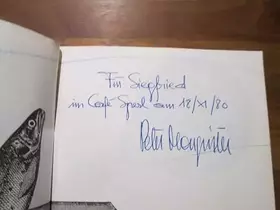 Für Siegfried
im Café Sperl am 12/XI/80
Peter